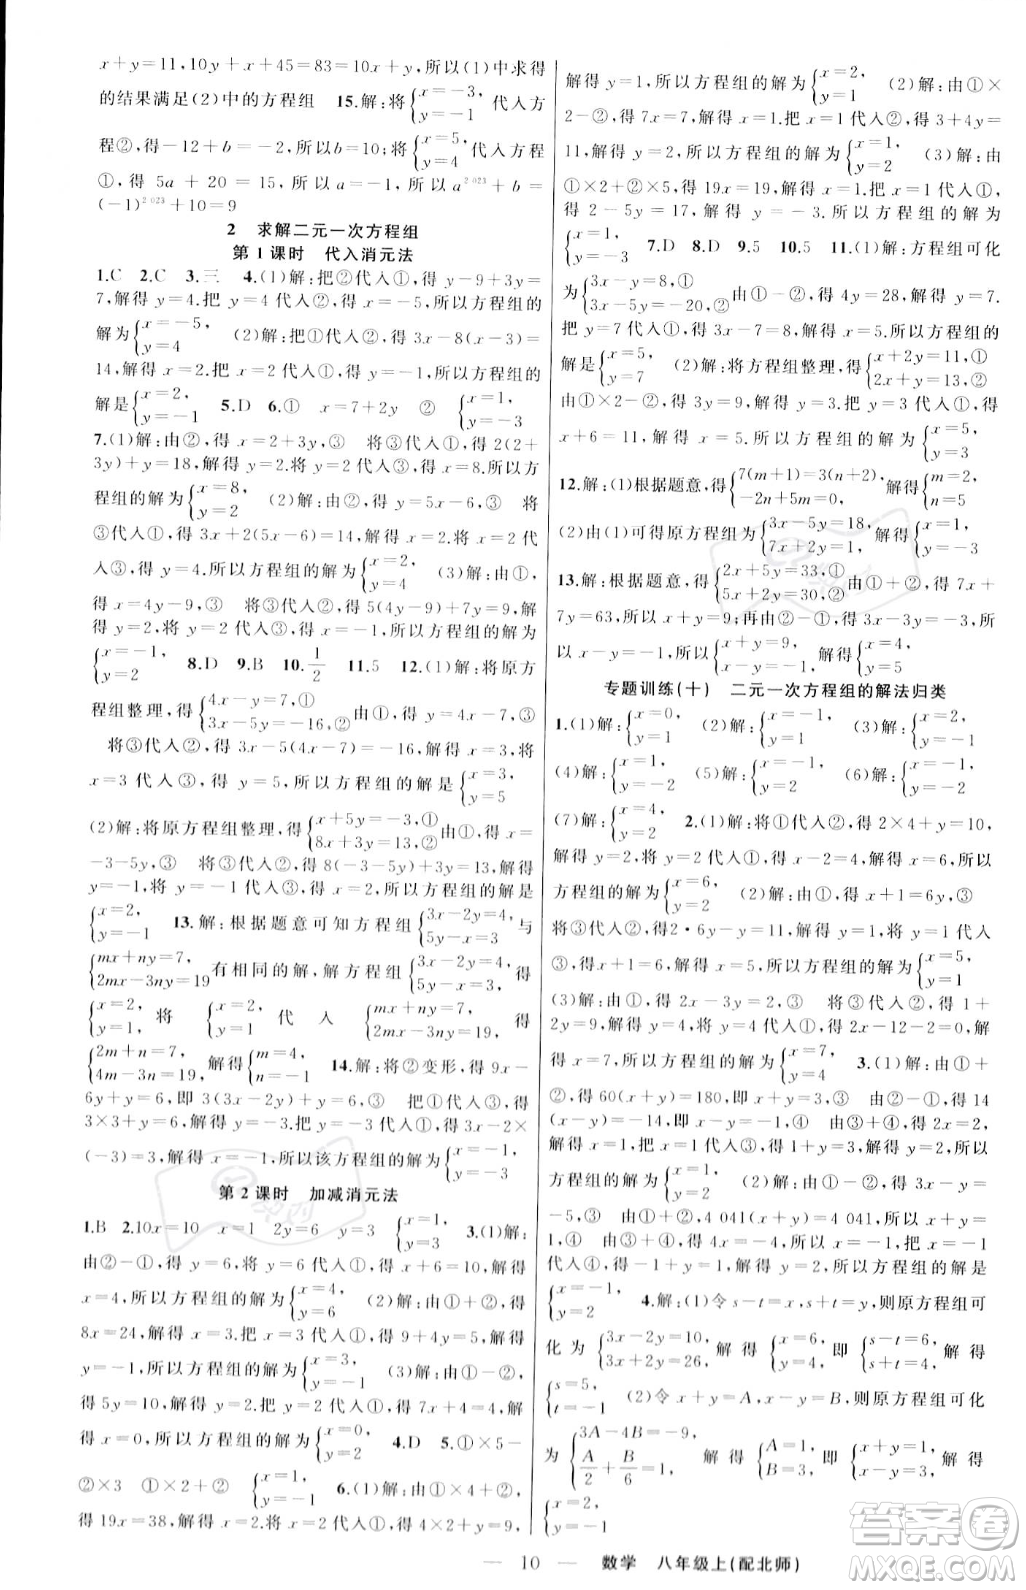 x+y=11,10y+x+45=83=10x+y,所以(1)中求得
的结果满足(2)中的方程组 15.解:将{x=-3, y=-1 代入方
程②,得-12+b=-2,所以b=10;将{x=5, y=4 代入方程
①,得 5a+20=15,所以a=-1,所以a^2023+b=
(-1)^2023+10=9
2 求解二元一次方程组
第1课时 代入消元法
1.C 2.C 3.三 4.(1)解:把②代入①,得y-9+3y=
7,解得y=4.把y=4代入②,得x=-5,所以方程组的
解为{x=-5, y=4 (2)解:把①代入②,得3x-8(3-x)=
14,解得x=2.把x=2代入①,得y=-1,所以方程组的
解是{x=2, y=-1 5.D 6.① x=7+2y ② {x=1, y=-3
7.(1)解:由②,得x=2+3y,③ 将③代入①,得2(2+
3y)+y=18,解得y=2.将y=2代入③,得x=8.所以方
程组的解为{x=8, y=2 (2)解:由②,得y=5x-6,③ 将
③代入①,得3x+2(5x-6)=14,解得x=2.将x=2代
入③,得y=4.所以方程组的解为{x=2, y=4 (3)解:由①,
得x=4y-9③ 将③代入②,得5(4y-9)+9=y,解得
y=2.将y=2代入③,得x=-1,所以方程组的解为
{x=-1, y=2 8.D 9.B 10.1/2 11.5 12.(1)解:将原方
程组整理,得{4x-y=7,① 3x-5y=-16,②由①,得y=4x-7,③
将③代入②,得3x-5(4x-7)=-16,解得x=3.将
x=3代入③,得y=5,所以方程组的解是{x=3, y=5
(2)解:将原方程组整理,得{x+5y=-3,① 8x+3y=13,②由①,得x=
-3-5y,③ 将③代入②,得8(-3-5y)+3y=13,解得
y=-1.将y=-1代入③,得x=2,所以方程组的解是
{x=2, y=-1 13.解:根据题意可知方程组{3x-2y=4, 5y-x=3与
{mx+ny=7, 2mx-3ny=19有相同的解,解方程组{3x-2y=4, 5y-x=3,得
{x=2, y=1,将{x=2, y=1代入{mx+ny=7, 2mx-3ny=19,得
{2m+n=7, 4m-3n=19,解得{m=4, n=-1 14.解:将②变形,得9x-
6y+y=6,即3(3x-2y)+y=6,③ 把①代入③,得
3×3+y=6,解得y=-3.把y=-3代入①,得3x-2×
(-3)=3,解得x=-1,所以该方程组的解为{x=-1, y=-3
第2课时 加减消元法
1.B 2.10x=10 x=1 2y=6 y=3 {x=1, y=3 3.(1)解:
由②-①,得y=6,将y=6代入①,得x+6=10,解得
x=4,所以方程组的解为{x=4, y=6 (2)解:由①+②,得
8x=24,解得x=3.把x=3代入①,得9+4y=5,解得
y=-1,所以方程组的解为{x=3, y=-1 (3)解:由①+②,
得5y=10,解得y=2.把y=2代入①,得x+2=2,解
得x=0,所以方程组的解为{x=0, y=2 4.D 5.①×5-
②×3 ①×2+② {x=1, y=-1 6.(1)解:由①×5+②,
得19x=38,解得x=2.把x=2代入①,得4×2+y=9,
解得y=1,所以方程组的解为{x=2, y=1 (2)解:由①×
2-②,得7x=7,解得x=1.把x=1代入②,得3+4y=
11,解得y=2,所以方程组的解为{x=1, y=2 (3)解:由①
×2+②×5,得19x=19,解得x=1.把x=1代入①,得
2-5y=17,解得y=-3.所以方程组的解为
{x=1, y=-3 7.D 8.D 9.5 10.5 11.(1)解:方程组可化
为{3x-y=8,① 3x-5y=-20,②由①-②,得4y=28,解得y=7.
把y=7代入①,得3x-7=8,解得x=5.所以方程组的
解是{x=5, y=7 (2)解:将方程组整理,得{x+2y=11,① 2x+y=13,②
由①×2-②,得3y=9,解得y=3,把y=3代入①,得
x+6=11,解得x=5.所以方程组的解为{x=5, y=3
12.解:(1)根据题意,得{7(m+1)=3(n+2), -2n+5m=0,解得{m=2, n=5
(2)由(1)可得原方程组为{3x-5y=18, 7x+2y=1,解得{x=1, y=-3
13.解:根据题意,得{2x+5y=33,① 5x+2y=30,②由①+②,得7x+
7y=63,所以x+y=9;再由②-①,得3x-3y=-3,所
以x-y=-1,所以{x+y=9, x-y=-1,解得{x=4, y=5
专题训练(十) 二元一次方程组的解法归类
1.(1)解:{x=0, y=-1 (2)解:{x=-1, y=-1 (3)解:{x=2, y=-1
(4)解:{x=1, y=-2 (5)解:{x=-1, y=-2 (6)解:{x=-1, y=-2
(7)解:{x=4, y=2 2.(1)解:将①代入②,得2×4+y=10,
解得y=2.将y=2代入①,得x-2=4,解得x=6,所以
方程组的解为{x=6, y=2 (2)解:由①,得x+1=6y,③
将③代入②,得2·6y-y=11,解得y=1,将y=1代入
③,得x+1=6,解得x=5,所以方程组的解为{x=5, y=1
(3)解:由①,得2x-3y=2,③ 将③代入②,得1+
2y=9,解得y=4,将y=4代入③,得2x-12-2=0,解
得x=7,所以方程组的解为{x=7, y=4 3.(1)解:由①+
②,得60(x+y)=180,即x+y=3,③ 由②-①,得14
(x-y)=-14,即x-y=-1,④ 由③+④,得2x=2,
解得x=1.把x=1代入③,得y=2,所以方程组的解为
{x=1, y=2 (2)解:由②-①,得3x+3y=-6,即x+y=
-5,③ 由①+②,得4 041(x-y)=4 041,所以x-y=
1,④ 由③+④,得2x=-2,所以x=-1.把x=-1
代入④,得-1-y=1,解得y=-2,所以方程组的解是
{x=-1, 4.解:(1)令s-t=x,s+t=y,则原方程组可
化为{3x-2y=10, 3x+2y=26,解得{x=6, y=4,即{s-t=6, s+t=4,解得
{s=5, t=-1 (2)令x+y=A,x-y=B,则原方程组可化
为{3A-4B=-9, A/2+B/6=1,解得{A=1, B=3,即{x+y=1, x-y=3,解得
{x=2, y=-1
— 10 — 数学 八年级上(配北师)
答案圈
MXQE.COM